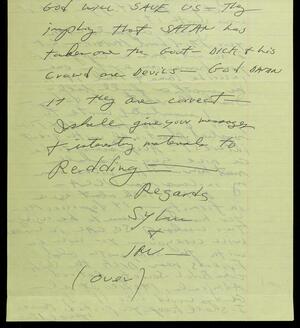 God will SAVE US — They
imply that SATAN has
taken over the Govt — DICK & his
Crowd are DEVILS — God DAMN
it they are correct —
I shall give your messages
& interesting materials to
Redding —
Regards
Sylvia
&
IRV —
(over)